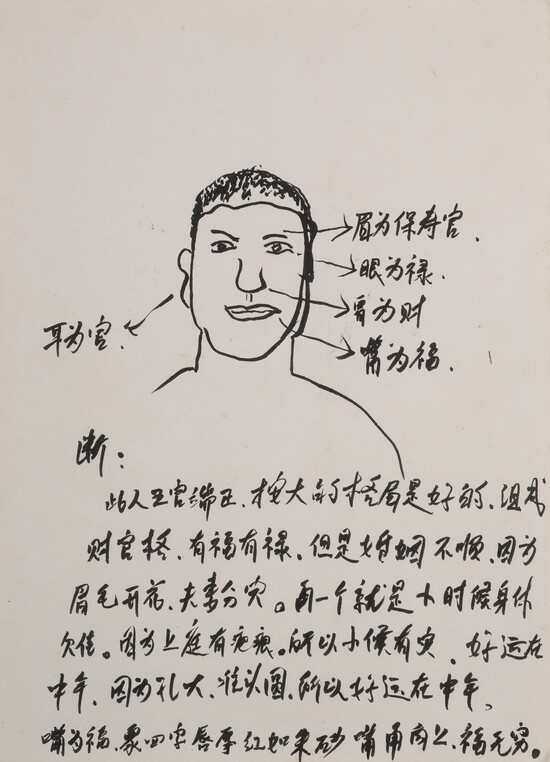 眉为保寿官.
眼为禄.
鼻为财
嘴为福.
耳为官.
断：
此人五官端正.按大的格局是好的.组成
财官格.有福有禄.但是婚姻不顺.因为
眉毛开花.夫妻分灾。再一个就是小时候身体
欠佳。因为上庭有疤痕。所以小候有灾.好运在
中年.因为孔大.准头圆.所以好运在中年,
嘴为福.象四字唇厚红如朱砂嘴角向上.福无穷。